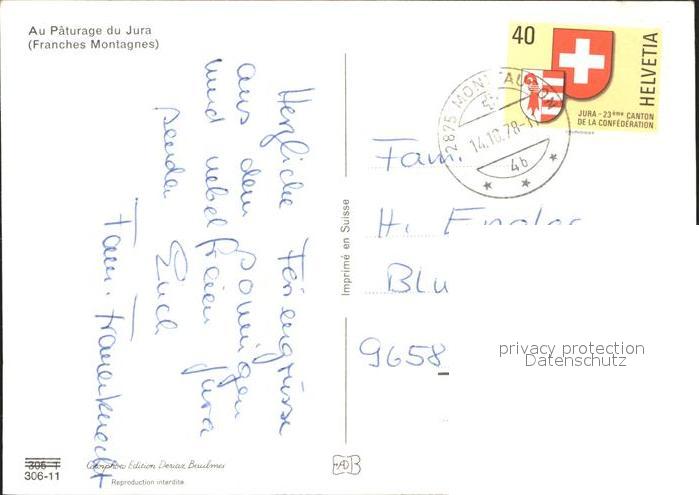 Au Pâturage du Jura
(Franches Montagnes)
Herzliche Feriengrüsse
aus dem sonnigen
und nebelfreien Jura
senden Euch
Fam. Frauenknecht
Imprimé en Suisse
40
HELVETIA
JURA - 23ème CANTON
DE LA CONFÉDÉRATION
2875 MONTFAUCON
14.10.78-11
4b
Fam.
H. Engler
Blu
9658
privacy protection
Datenschutz
306-1
306-11
Edition Deriaz Baulmes
Reproduction interdite